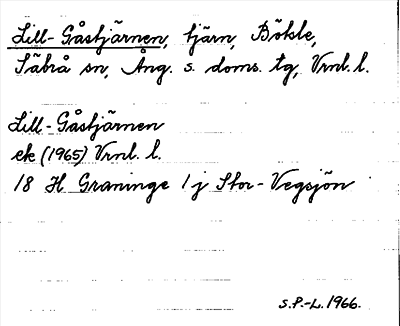 Lill-Gåstjärnen, tjärn, Bökle,
Säbrå sn, Ång. s. doms. tg, Vrnl. l.
Lill-Gåstjärnen
ek (1965) Vrnl. l.
18 H Graninge 1 j Stor-Vegsjön
S.P.-L. 1966.